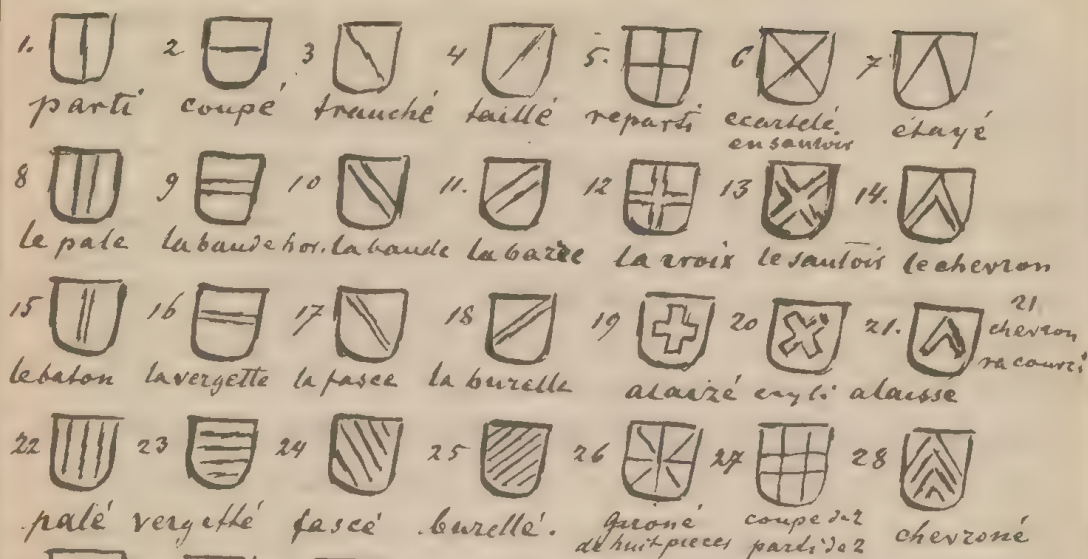 1. 2 3 4 5. 6 7
parti coupé tranché taillé reparti ecartelé étayé
en sautoir
8 9 10 11. 12 13 14.
le pale la bande hor. la bande la barre la croix le sautoir le chevron
15 16 17 18 19 20 21. 21
chevron
racourci
le baton la vergette la fasce la burelle alaizé alaissé
22 23 24 25 26 27 28
palé vergetté fascé burellé. gironé coupe de 2 chevroné
de huit pieces parti de 2